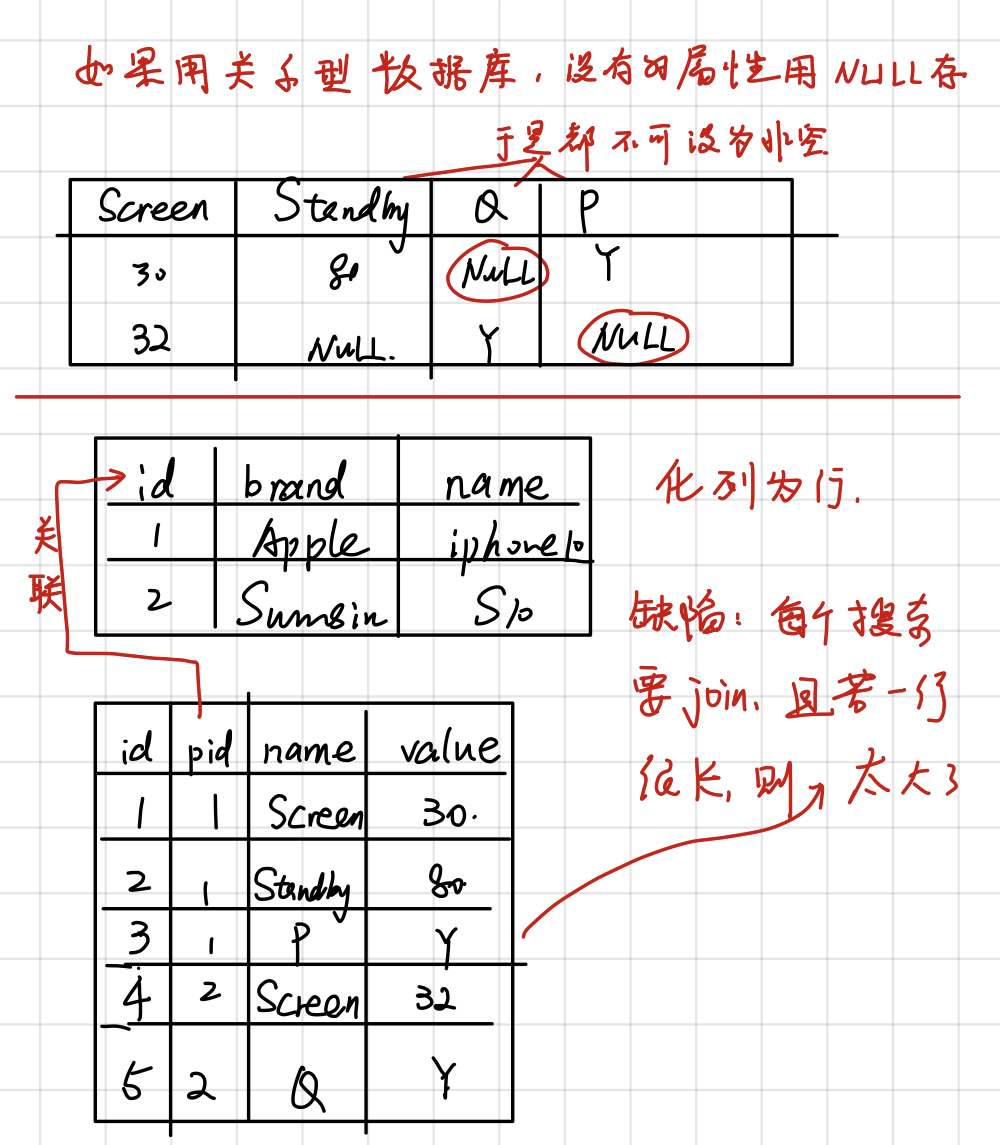 如果用关系型数据库，没有的属性用NULL存
于是都不可设为非空
Screen Standby Q P
30 80 NULL Y
32 NULL. Y NULL
id brand name
1 Apple iphone10
2 Sumsin S10
化列为行.
关
联
缺陷：每个搜索
要join，且若一行
很长，则 太大了
id pid name value
1 1 Screen 30.
2 1 Standby 80
3 1 P Y
4 2 Screen 32
5 2 Q Y